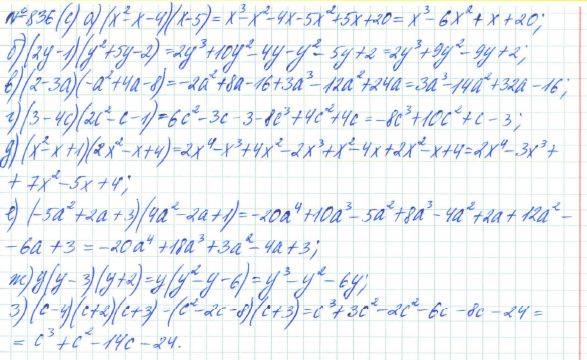 №836(с) а) (x²-x-4)(x-5)=x³-x²-4x-5x²+5x+20=x³-6x²+x+20;
б) (2y-1)(y²+5y-2)=2y³+10y²-4y-y²-5y+2=2y³+9y²-9y+2;
в) (2-3a)(-a²+4a-8)=-2a²+8a-16+3a³-12a²+24a=3a³-14a²+32a-16;
г) (3-4c)(2c²-c-1)=6c²-3c-3-8c³+4c²+4c=-8c³+10c²+c-3;
д) (x²-x+1)(2x²-x+4)=2x⁴-x³+4x²-2x³+x²-4x+2x²-x+4=2x⁴-3x³+
+7x²-5x+4;
е) (-5a²+2a+3)(4a²-2a+1)=-20a⁴+10a³-5a²+8a³-4a²+2a+12a²-
-6a+3=-20a⁴+18a³+3a²-4a+3;
ж) y(y-3)(y+2)=y(y²-y-6)=y³-y²-6y;
з) (c-4)(c+2)(c+3)=(c²-2c-8)(c+3)=c³+3c²-2c²-6c-8c-24=
=c³+c²-14c-24.